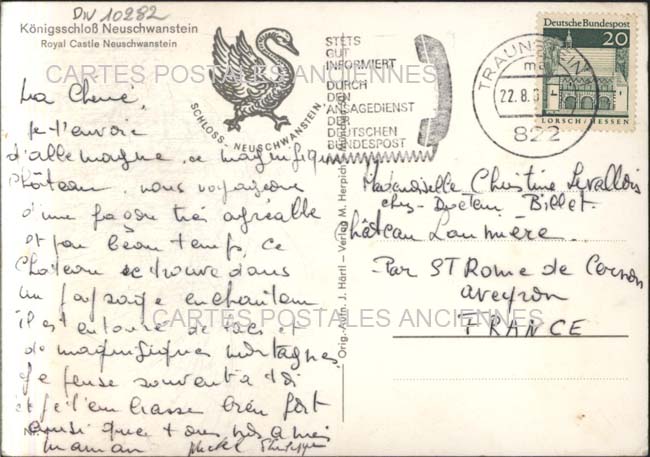 DW 10282
Königsschloß Neuschwanstein
Royal Castle Neuschwanstein
SCHLOSS - NEUSCHWANSTEIN
STETS
GUT
INFORMIERT
DURCH
DEN
ANSAGEDIENST
DER
DEUTSCHEN
BUNDESPOST
TRAUNSTEIN
22.8.6
822
Deutsche Bundespost
20
LORSCH / HESSEN
CARTES POSTALES ANCIENNES
Ma Chérie,
je t'envoie
d'allemagne, ce magnifique
château, nous voyageons
d'une façon très agréable
et par beau temps, ce
Château se trouve dans
un paysage enchanteur
il est entouré de lacs et
de magnifiques montagnes
Je pense souvent à toi
et je t'embrasse bien fort
ainsi que tous nos amis
maman Michel
Orig.-Aufn. J. Härtl - Verlag M. Herpich
Mademoiselle Christine Levallois
chez Docteur Billet
Château Laumière
Par ST Rome de Cernon
aveyron
FRANCE
CARTES POSTALES ANCIENNES